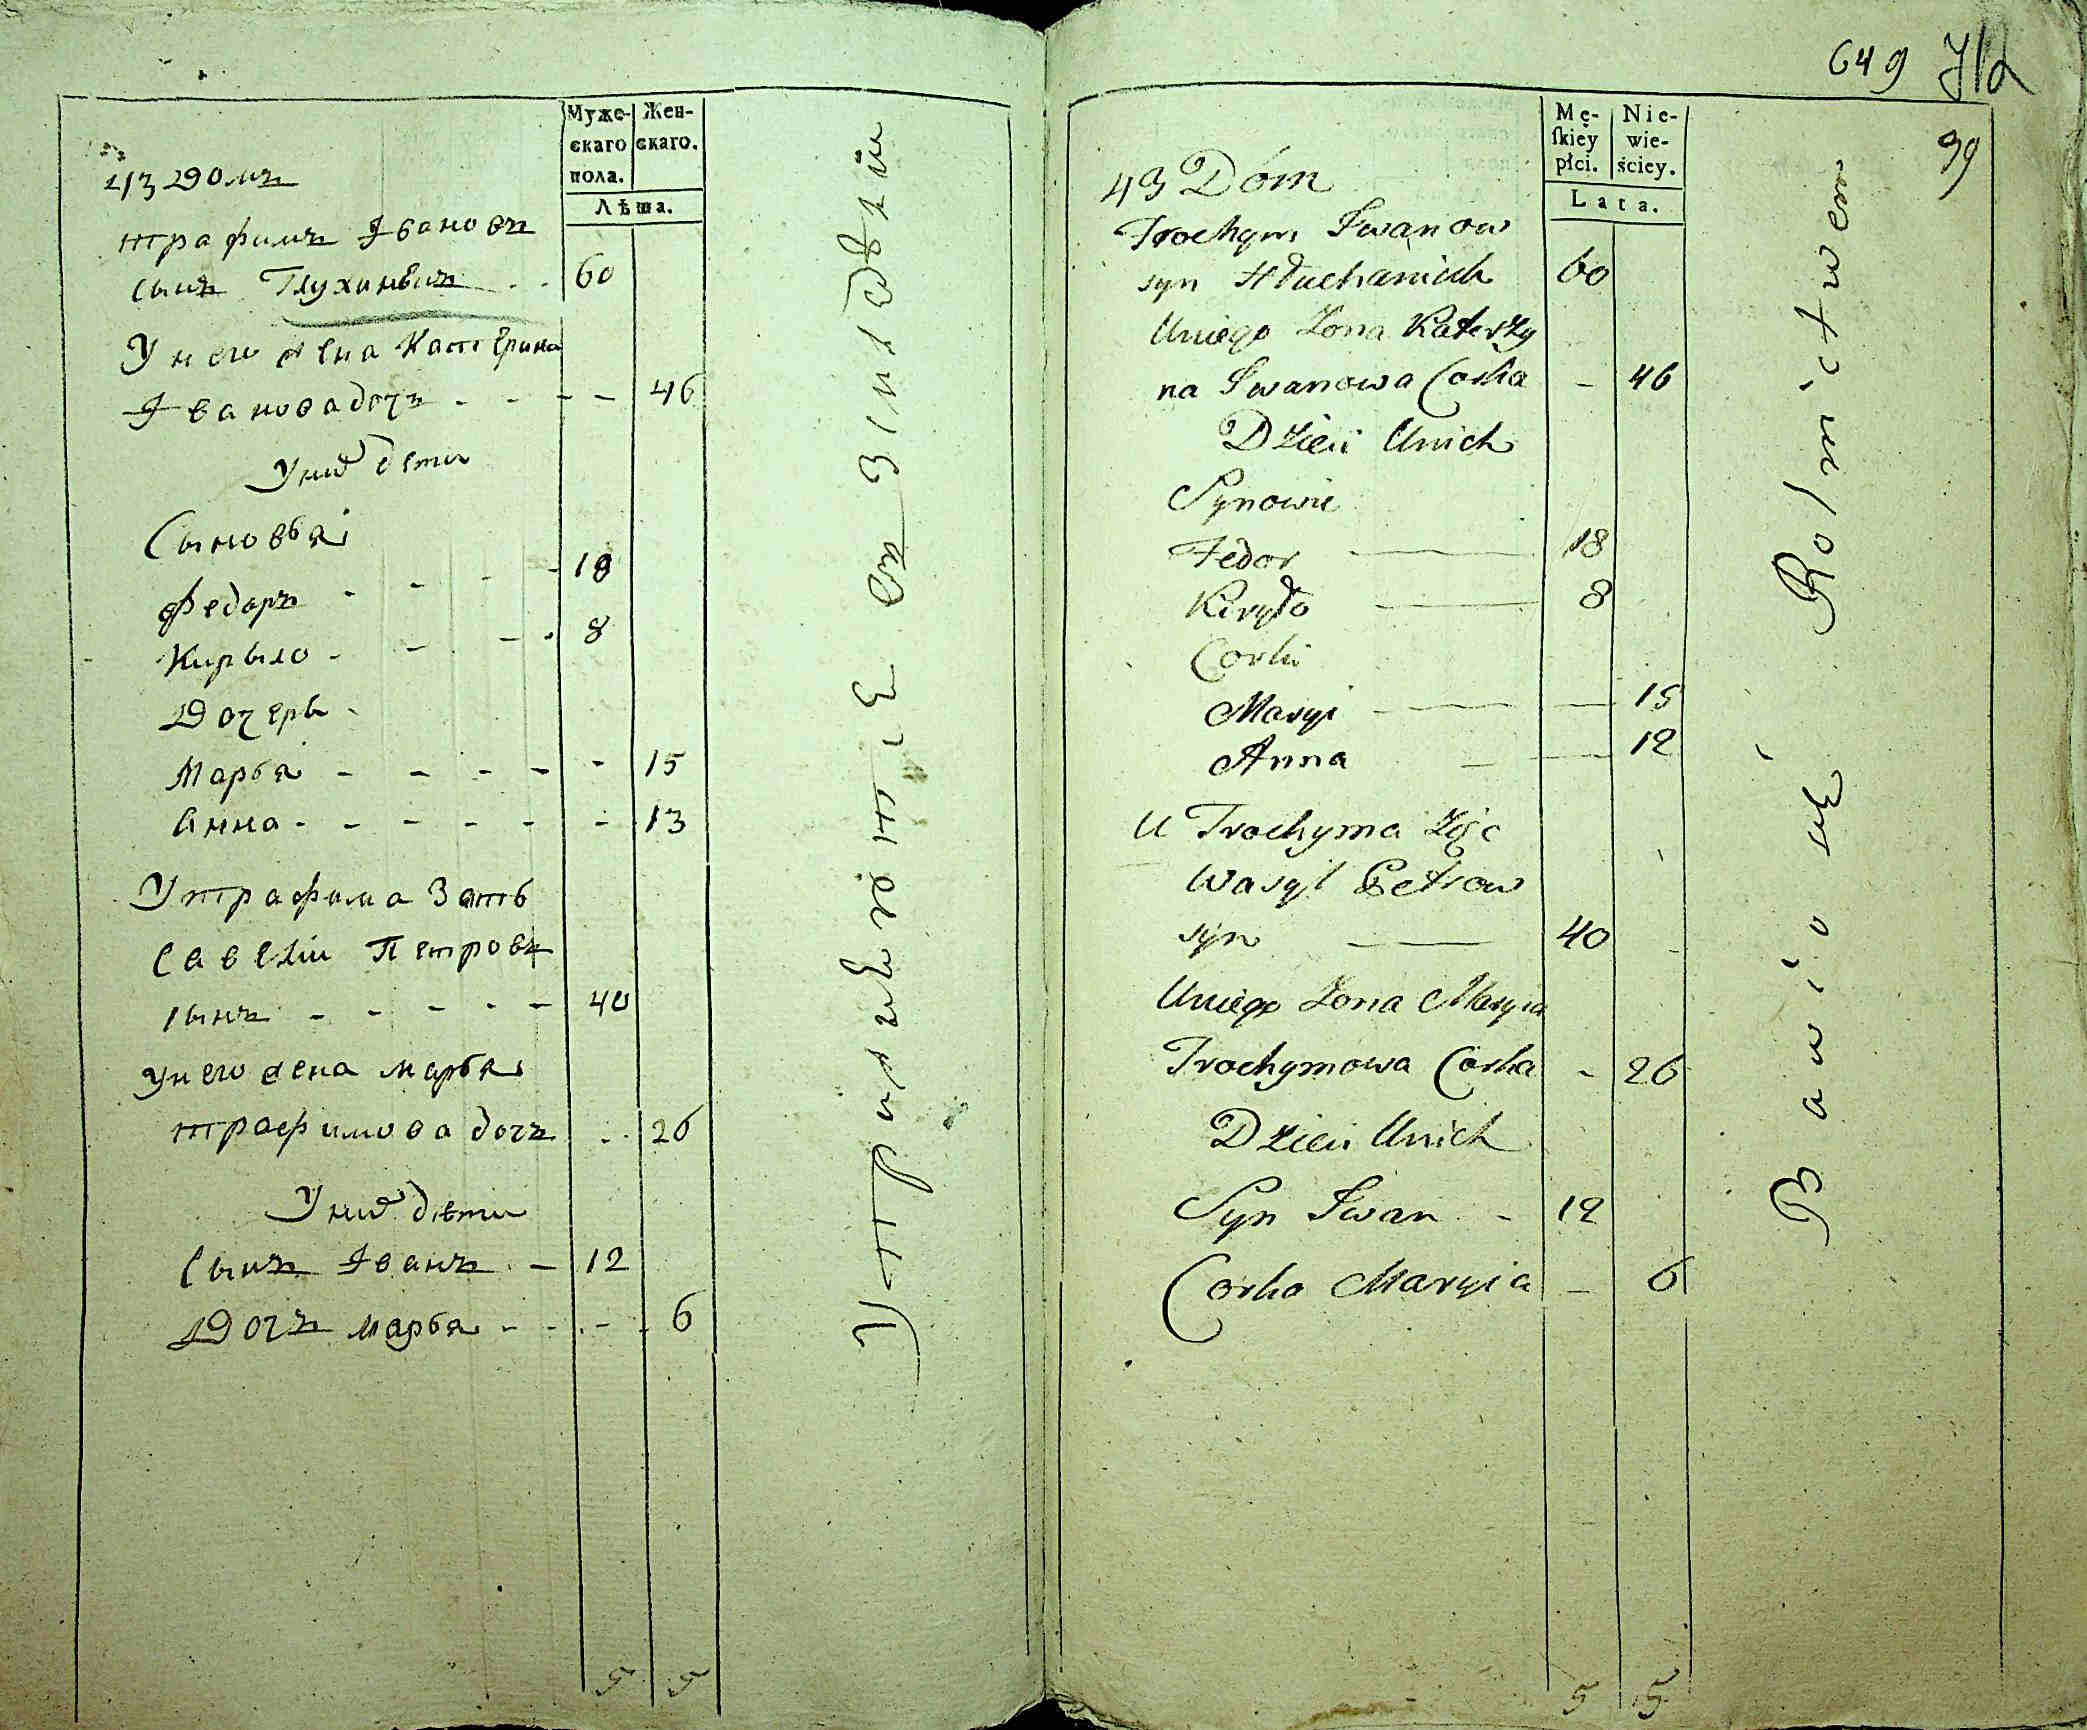 Муже-
скаго
пола.
Жен-
скаго.
Лѣта.
43 Домъ
трафимъ Ивановъ
сынъ Глуханикъ 60
У него жена Катерина
Иванова дочъ 46
У них дети
Сыновья
Федоръ 18
Кирыло 8
Дочеры
Марья 15
Анна 13
У трафима Зять
Савелiй Петровъ
сынъ 40
У него жена марья
трафимова дочъ 26
У них дети
Сынъ Иванъ 12
Дочъ марья 6
5 5
649
99
Mę-
ſkiéy
płci.
Nie-
wie-
ściey.
Lata.
43 Dóm
Trochym Iwanow
syn Hłuchanick 60
Uniego Żona Katerzy
na Iwanowa Corka 46
Dzieci Unich
Synowie
Fedor 18
Kiryło 8
Corki
Maryi 15
Anna 12
U Trochyma Zięc
Wasyl Petrow
syn 40
Uniego Żona Maryia
Trochymowa Corka 26
Dzieci Unich
Syn Iwan 12
Corka Maryia 6
Bawio się Rolnictwem
5 5